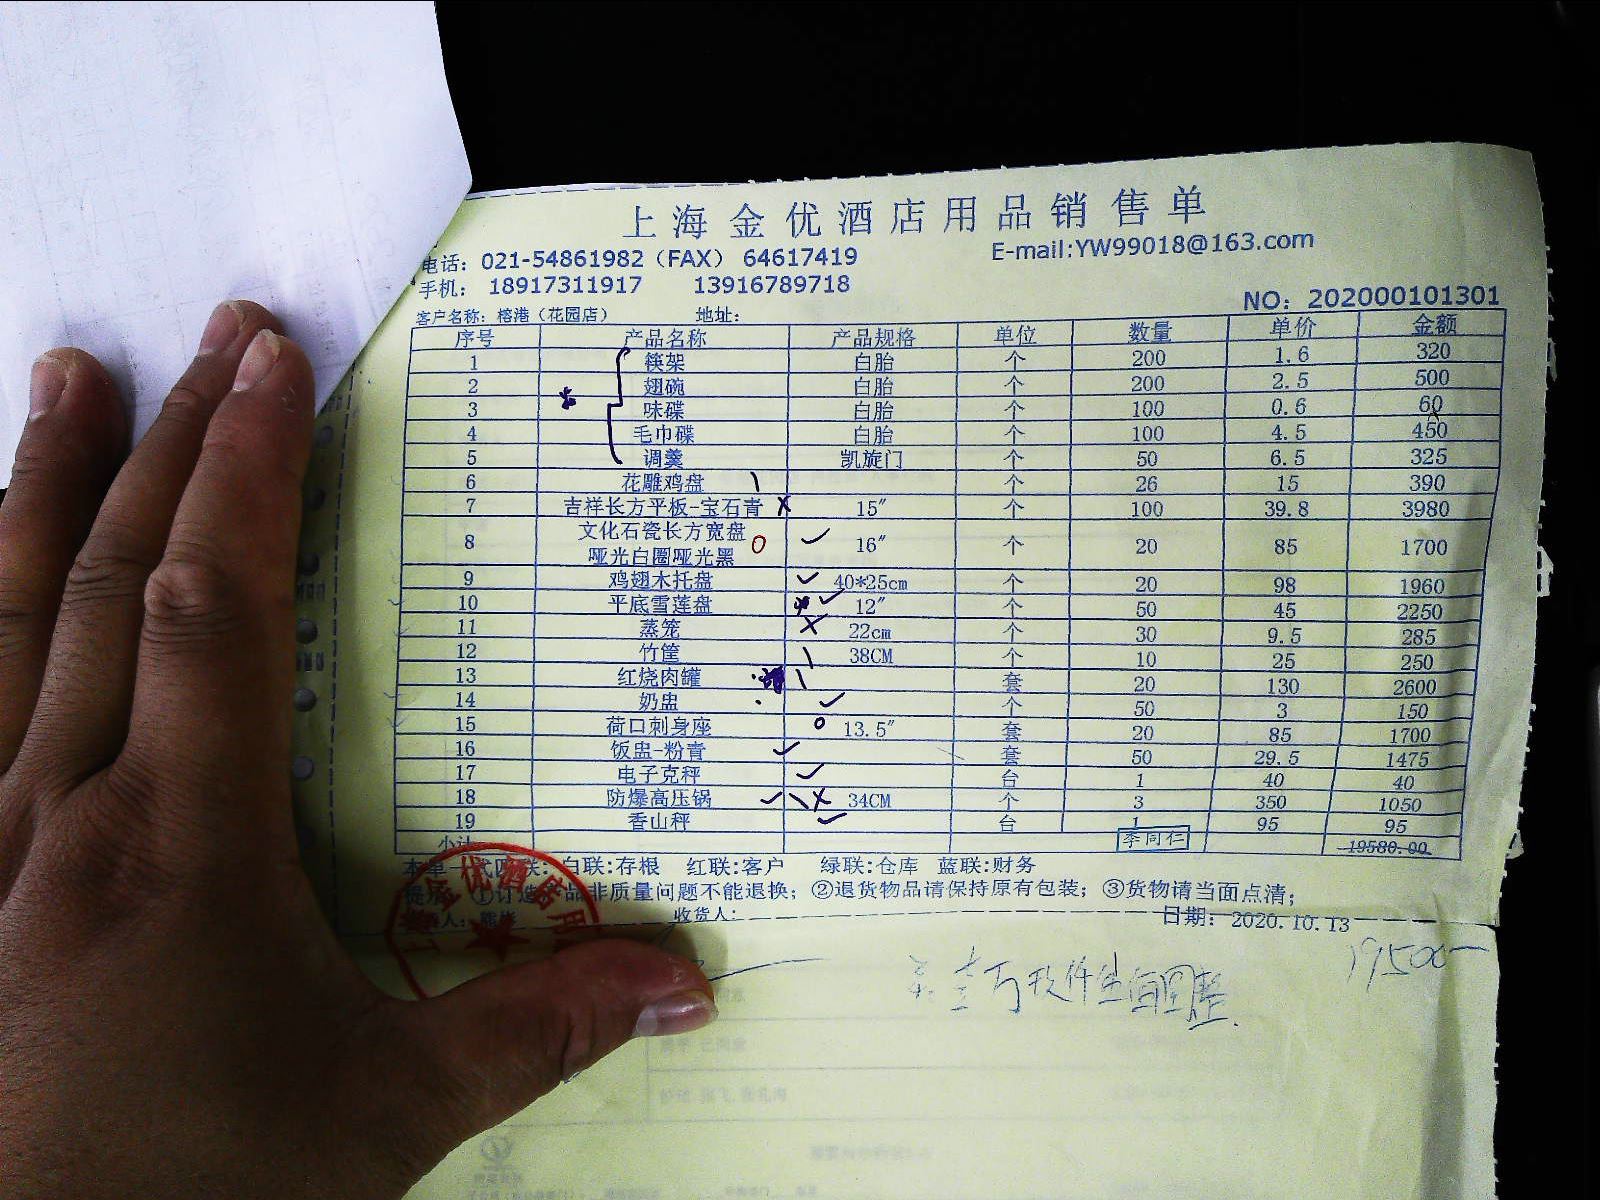 上海金优酒店用品销售单
电话：021-54861982（FAX） 64617419 E-mail:YW99018@163.com
手机： 18917311917 13916789718
NO：202000101301
客户名称：榕港（花园店） 地址：
序号 产品名称 产品规格 单位 数量 单价 金额
1 筷架 白胎 个 200 1.6 320
2 翅碗 白胎 个 200 2.5 500
3 味碟 白胎 个 100 0.6 60
4 毛巾碟 白胎 个 100 4.5 450
5 调羹 凯旋门 个 50 6.5 325
6 花雕鸡盘 个 26 15 390
7 吉祥长方平板-宝石青 15″ 个 100 39.8 3980
8 文化石瓷长方宽盘 哑光白圈哑光黑 16″ 个 20 85 1700
9 鸡翅木托盘 40*25cm 个 20 98 1960
10 平底雪莲盘 12″ 个 50 45 2250
11 蒸笼 22cm 个 30 9.5 285
12 竹筐 38CM 个 10 25 250
13 红烧肉罐 套 20 130 2600
14 奶盅 个 50 3 150
15 荷口刺身座 13.5″ 套 20 85 1700
16 饭盅-粉青 套 50 29.5 1475
17 电子克秤 台 1 40 40
18 防爆高压锅 34CM 个 3 350 1050
19 香山秤 台 1 95 95
小计 李同仁 19580.00
本单一式四联：白联:存根 红联:客户 绿联:仓库 蓝联:财务
①订造产品非质量问题不能退换；②退货物品请保持原有包装；③货物请当面点清；
收货人： 日期：2020.10.13
19500